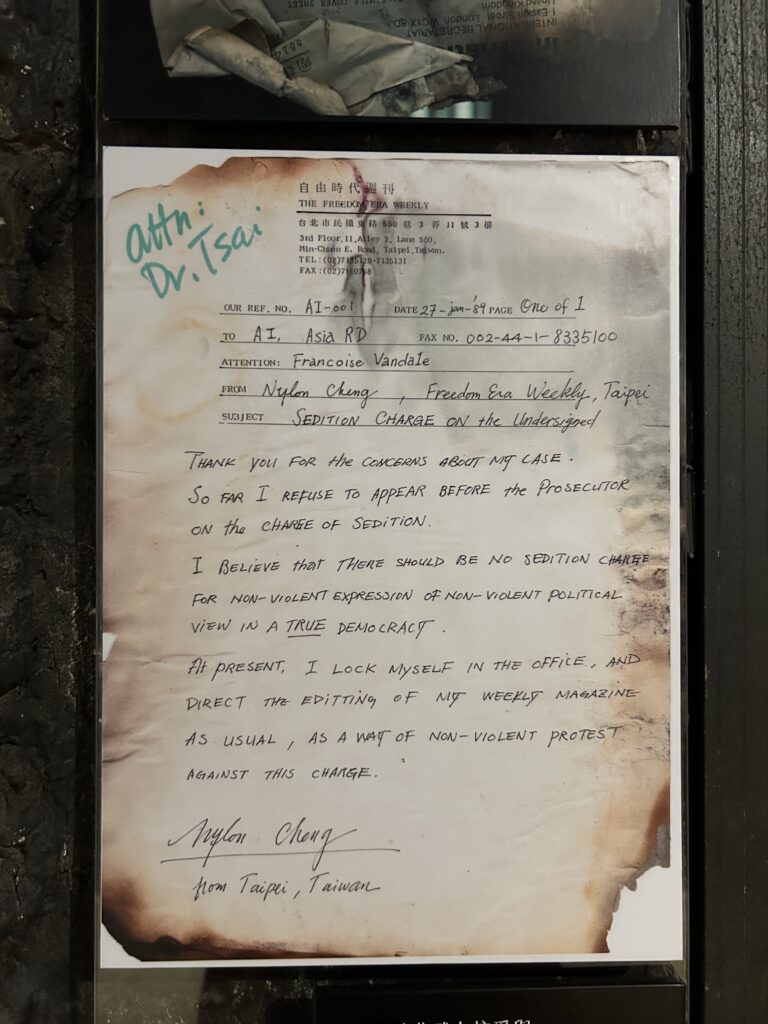 INTERNATIONAL SECRETARIAT
1 Easton Street London WC1X 8DJ
United Kingdom
COVER SHEET
attn:
Dr. Tsai
自由時代週刊
THE FREEDOM ERA WEEKLY
台北市民權東路 550 巷 3 弄 11 號 3 樓
3rd Floor,11,Alley 3, Lane 550,
Min-Chuan E. Road, Taipei,Taiwan.
TEL:(02)7135129-7135131
FAX:(02)7160768
OUR REF. NO. AI-001 DATE 27-jan-'89 PAGE One of 1
TO AI, Asia RD FAX NO. 002-44-1-8335100
ATTENTION: Francoise Vandale
FROM Nylon Cheng, Freedom Era Weekly, Taipei
SUBJECT SEDITION CHARGE ON the Undersigned
THANK YOU FOR the CONCERNS ABOUT MY CASE.
SO FAR I REFUSE TO APPEAR BEFORE the PROSECUTOR
ON the CHARGE OF SEDITION.
I BELIEVE that THERE SHOULD BE NO SEDITION CHARGE
FOR NON-VIOLENT EXPRESSION OF NON-VIOLENT POLITICAL
VIEW IN A TRUE DEMOCRACY.
At PRESENT, I LOCK MYSELF IN THE OFFICE, AND
DIRECT THE EDITTING OF MY WEEKLY MAGAZINE
AS USUAL, AS A WAY OF NON-VIOLENT PROTEST
AGAINST THIS CHARGE.
Nylon Cheng
from Taipei, Taiwan